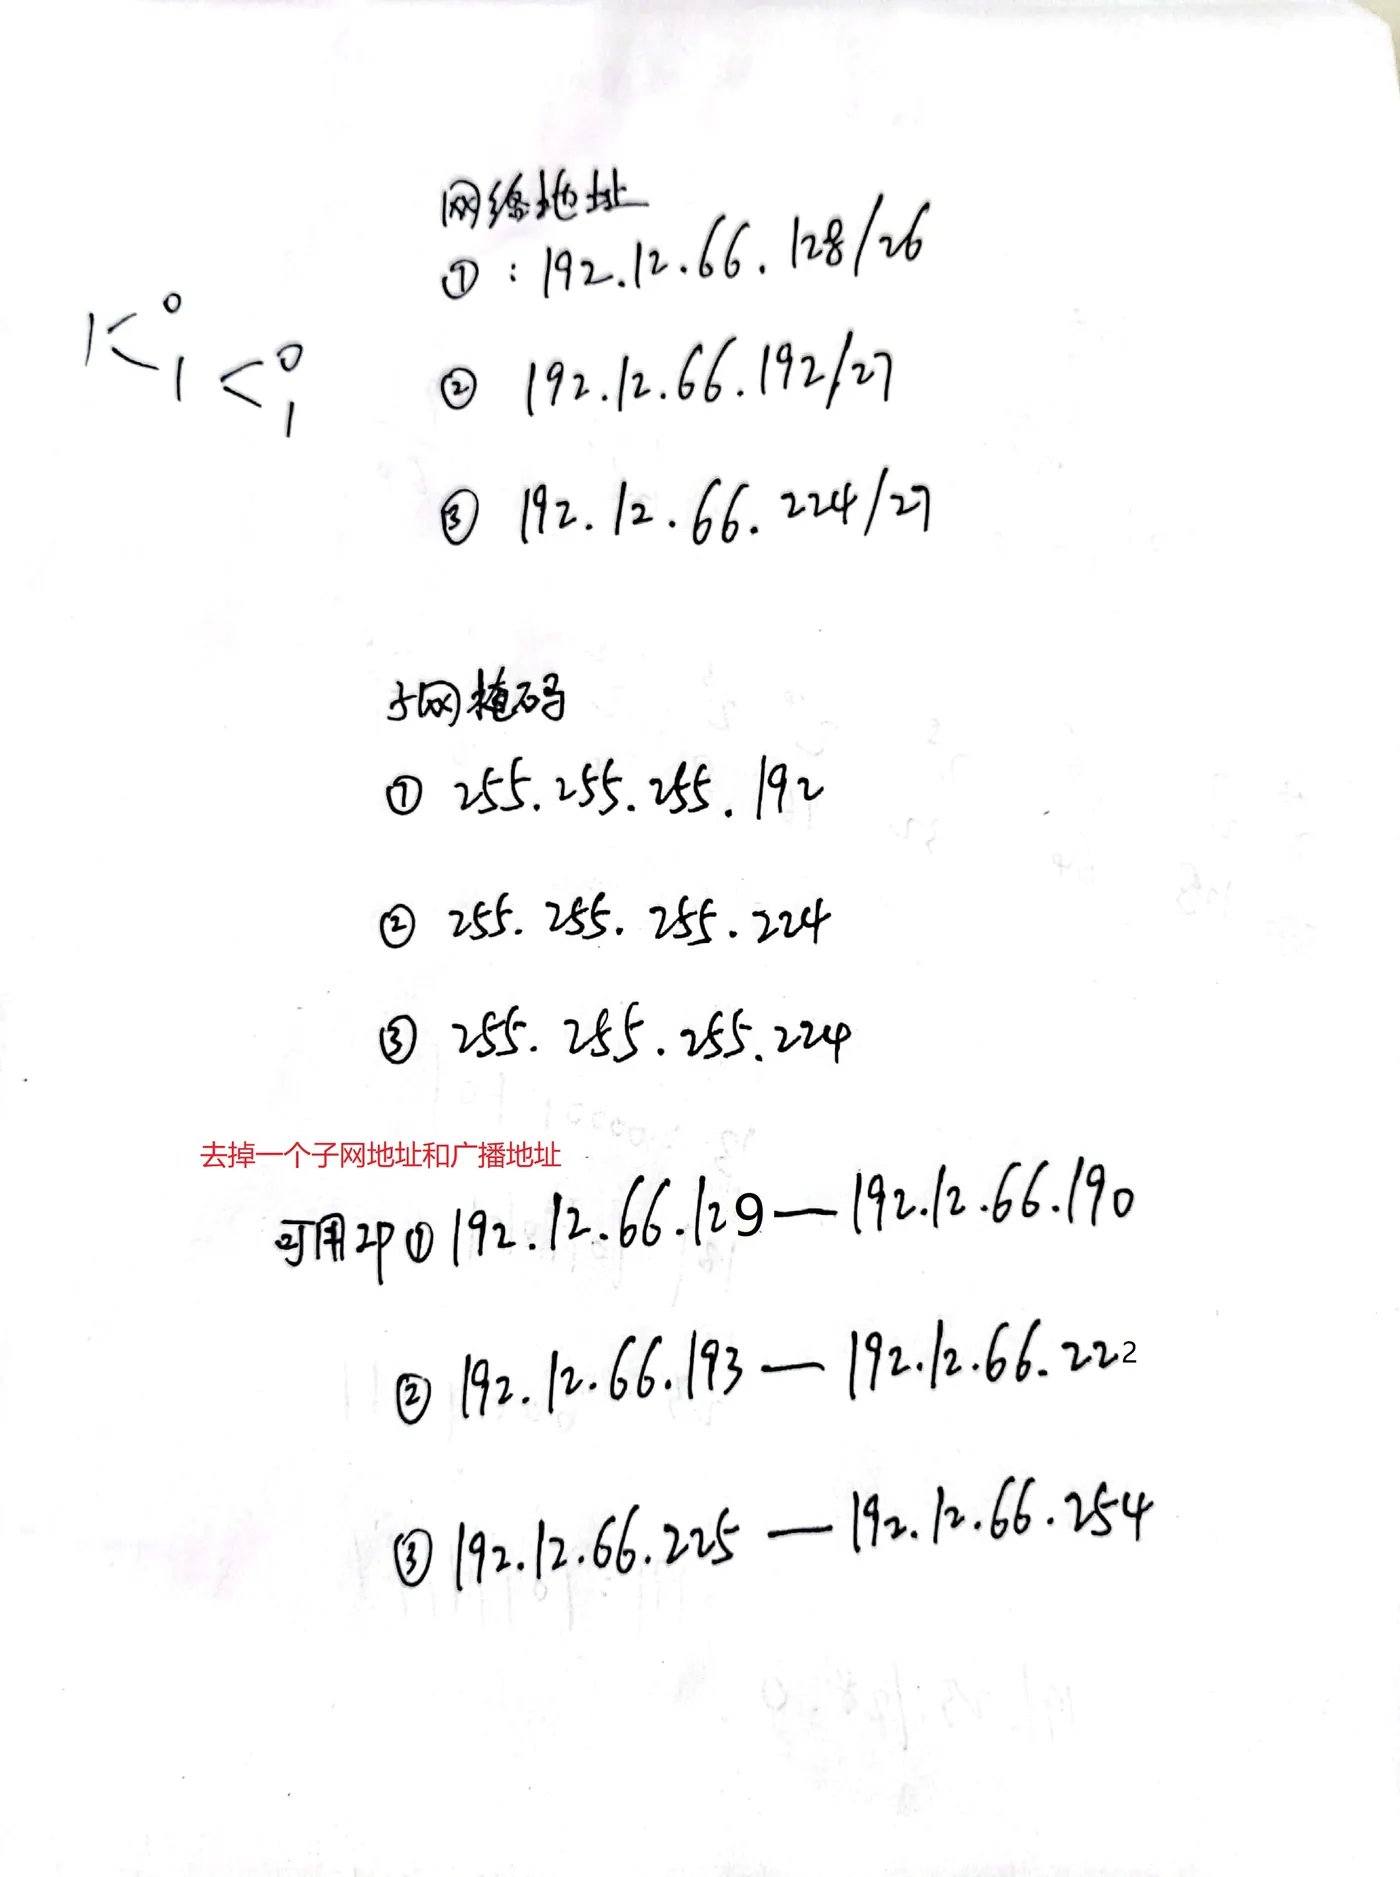 网络地址
①:192.12.66.128/26
1<0
1<0
1
② 192.12.66.192/27
③ 192.12.66.224/27
子网掩码
① 255.255.255.192
② 255.255.255.224
③ 255.255.255.224
去掉一个子网地址和广播地址
可用IP①192.12.66.129—192.12.66.190
②192.12.66.193—192.12.66.222
③192.12.66.225—192.12.66.254